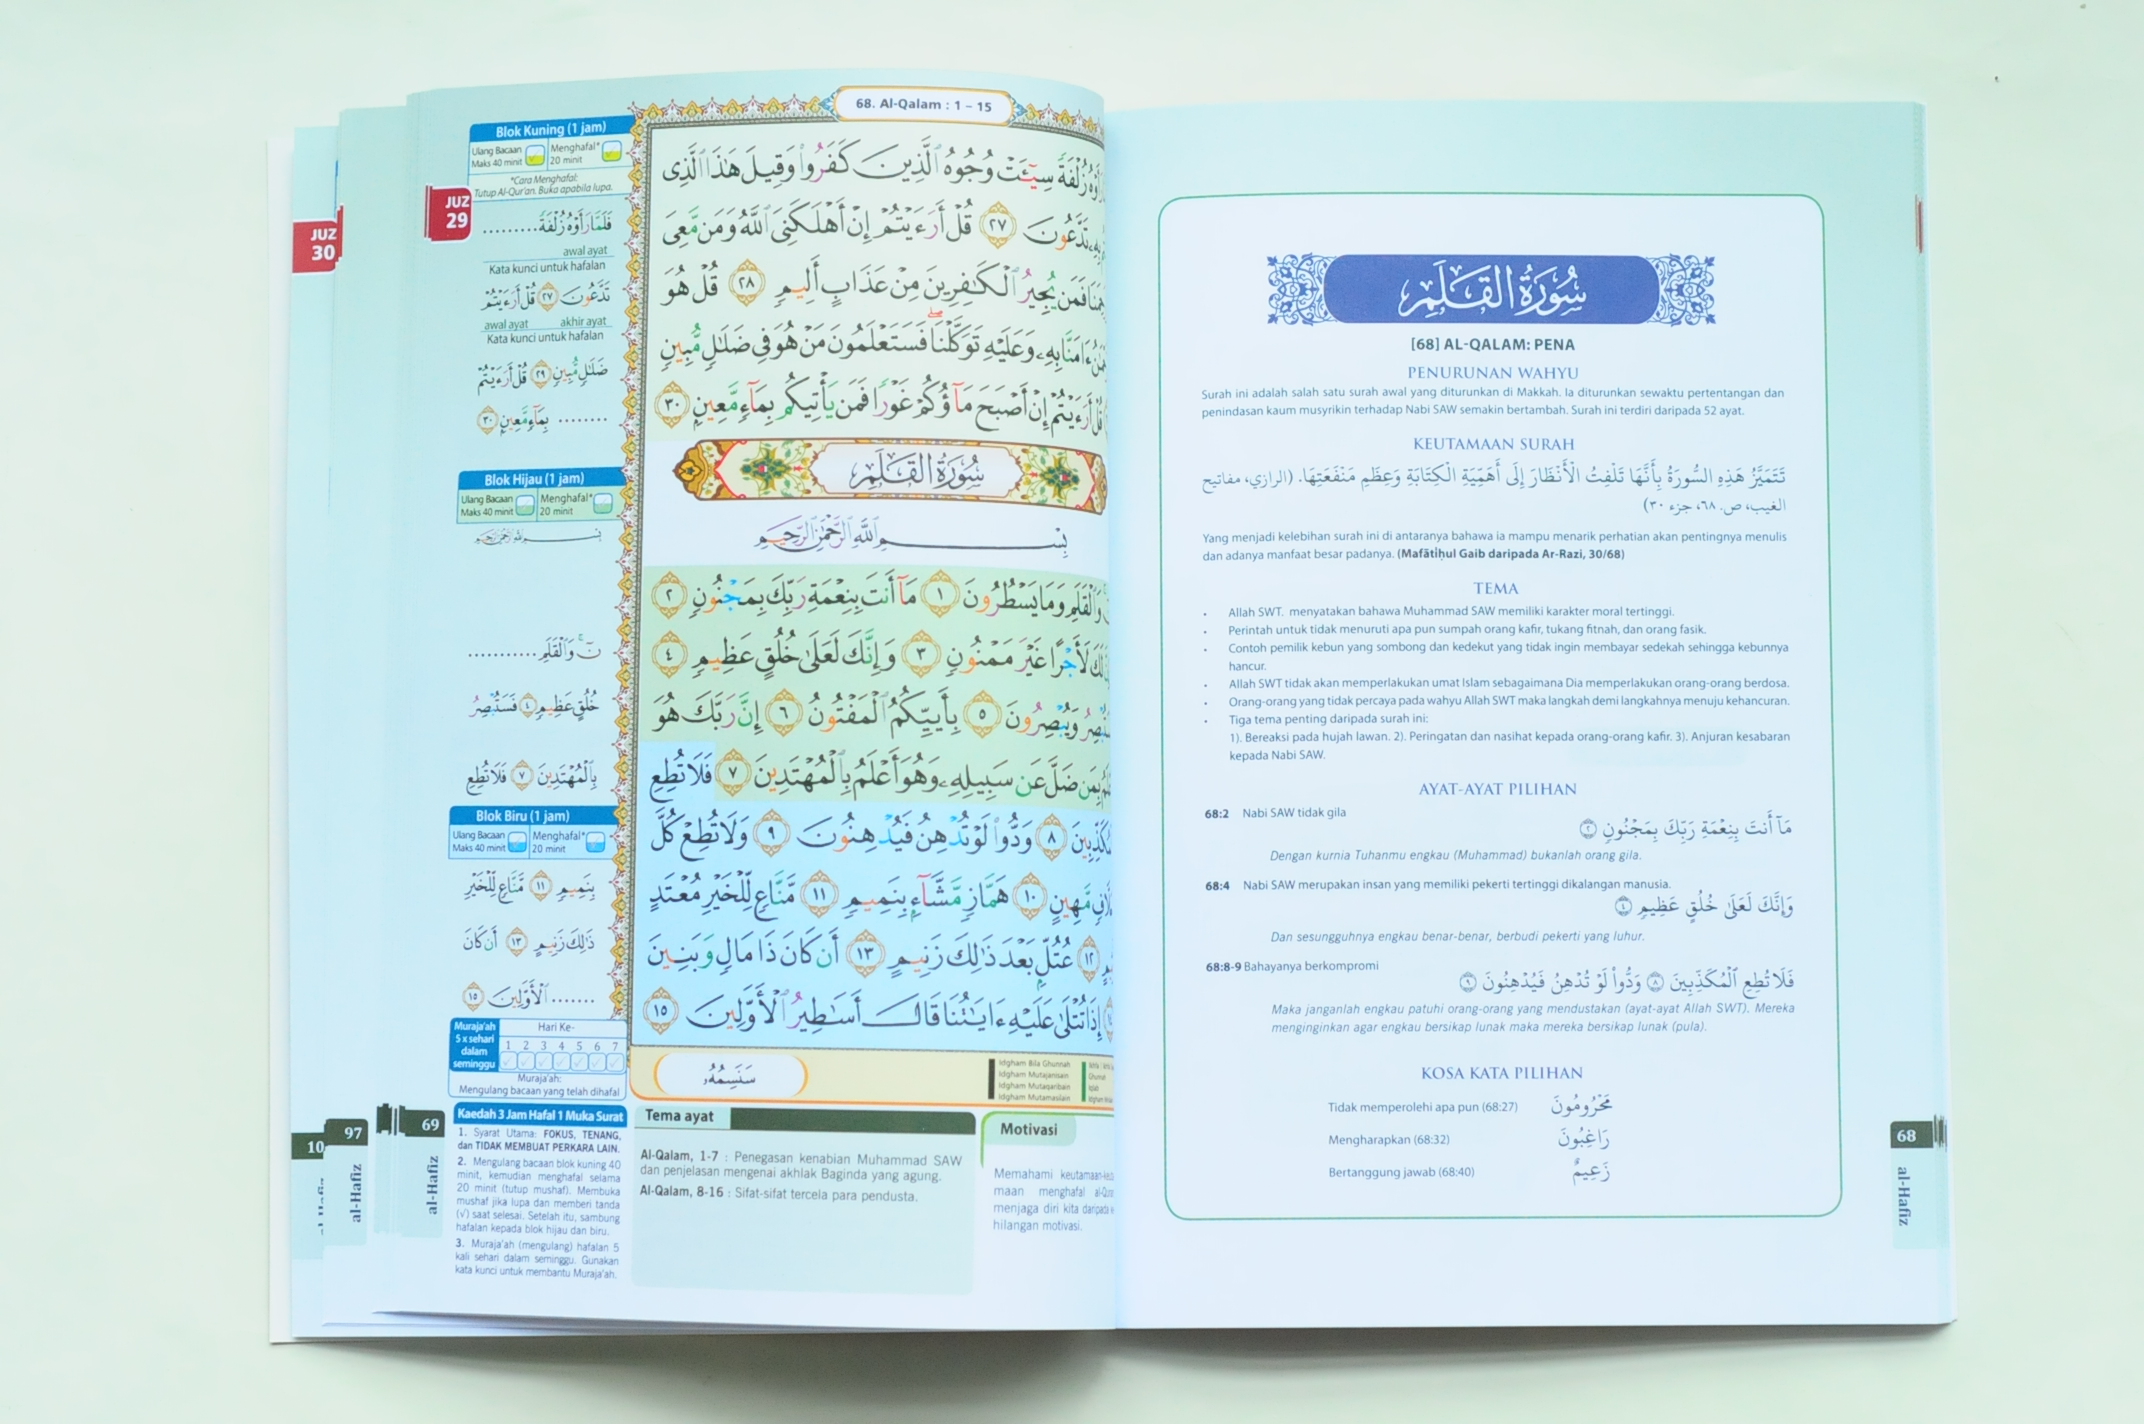 68. Al-Qalam : 1 – 15
Blok Kuning (1 jam)
Ulang Bacaan
Maks 40 minit
Menghafal*
20 minit
*Cara Menghafal:
Tutup Al-Qur'an. Buka apabila lupa.
JUZ
29
JUZ
30
فَلَمَّا رَأَوْهُ زُلْفَةً..........
awal ayat
Kata kunci untuk hafalan
تَدَّعُونَ ٢٧ قُلْ أَرَءَيْتُمْ
awal ayat akhir ayat
Kata kunci untuk hafalan
ضَلَٰلٍ مُّبِينٍ ٢٩ قُلْ أَرَءَيْتُمْ
........ بِمَآءٍ مَّعِينٍ ٣٠
Blok Hijau (1 jam)
Ulang Bacaan
Maks 40 minit
Menghafal*
20 minit
بِسْمِ ٱللَّهِ ٱلرَّحْمَٰنِ ٱلرَّحِيمِ
نٓ وَٱلْقَلَمِ..........
خُلُقٍ عَظِيمٍ ٤ فَسَتُبْصِرُ
بِٱلْمُهْتَدِينَ ٧ فَلَا تُطِعِ
Blok Biru (1 jam)
Ulang Bacaan
Maks 40 minit
Menghafal*
20 minit
بِنَمِيمٍ ١١ مَّنَّاعٍ لِّلْخَيْرِ
ذَٰلِكَ زَنِيمٍ ١٣ أَن كَانَ
....... ٱلْأَوَّلِينَ ١٥
Muraja'ah
5 x sehari
dalam
seminggu
Hari Ke-
1 2 3 4 5 6 7
Muraja'ah:
Mengulang bacaan yang telah dihafal
Kaedah 3 Jam Hafal 1 Muka Surat
1. Syarat Utama: FOKUS, TENANG,
dan TIDAK MEMBUAT PERKARA LAIN.
2. Mengulang bacaan blok kuning 40
minit, kemudian menghafal selama
20 minit (tutup mushaf). Membuka
mushaf jika lupa dan memberi tanda
(√) saat selesai. Setelah itu, sambung
hafalan kepada blok hijau dan biru.
3. Muraja'ah (mengulang) hafalan 5
kali sehari dalam seminggu. Gunakan
kata kunci untuk membantu Muraja'ah.
زُلْفَةً سِيٓـَٔتْ وُجُوهُ ٱلَّذِينَ كَفَرُوا۟ وَقِيلَ هَٰذَا ٱلَّذِى
بِهِۦ تَدَّعُونَ ٢٧ قُلْ أَرَءَيْتُمْ إِنْ أَهْلَكَنِىَ ٱللَّهُ وَمَن مَّعِىَ
فَمَن يُجِيرُ ٱلْكَٰفِرِينَ مِنْ عَذَابٍ أَلِيمٍ ٢٨ قُلْ هُوَ
ءَامَنَّا بِهِۦ وَعَلَيْهِ تَوَكَّلْنَا ۖ فَسَتَعْلَمُونَ مَنْ هُوَ فِى ضَلَٰلٍ مُّبِينٍ
قُلْ أَرَءَيْتُمْ إِنْ أَصْبَحَ مَآؤُكُمْ غَوْرًا فَمَن يَأْتِيكُم بِمَآءٍ مَّعِينٍ ٣٠
سُورَةُ ٱلْقَلَمِ
بِسْمِ ٱللَّهِ ٱلرَّحْمَٰنِ ٱلرَّحِيمِ
وَٱلْقَلَمِ وَمَا يَسْطُرُونَ ١ مَآ أَنتَ بِنِعْمَةِ رَبِّكَ بِمَجْنُونٍ ٢
لَأَجْرًا غَيْرَ مَمْنُونٍ ٣ وَإِنَّكَ لَعَلَىٰ خُلُقٍ عَظِيمٍ ٤
وَيُبْصِرُونَ ٥ بِأَييِّكُمُ ٱلْمَفْتُونُ ٦ إِنَّ رَبَّكَ هُوَ
بِمَن ضَلَّ عَن سَبِيلِهِۦ وَهُوَ أَعْلَمُ بِٱلْمُهْتَدِينَ ٧ فَلَا تُطِعِ
٨ وَدُّوا۟ لَوْ تُدْهِنُ فَيُدْهِنُونَ ٩ وَلَا تُطِعْ كُلَّ
مَّهِينٍ ١٠ هَمَّازٍ مَّشَّآءٍۭ بِنَمِيمٍ ١١ مَّنَّاعٍ لِّلْخَيْرِ مُعْتَدٍ
١٢ عُتُلٍّۭ بَعْدَ ذَٰلِكَ زَنِيمٍ ١٣ أَن كَانَ ذَا مَالٍ وَبَنِينَ
إِذَا تُتْلَىٰ عَلَيْهِ ءَايَٰتُنَا قَالَ أَسَٰطِيرُ ٱلْأَوَّلِينَ ١٥
سَنَسِمُهُۥ
Idgham Bila Ghunnah
Idgham Mutajanisain
Idgham Mutaqaribain
Idgham Mutamaslain
Tema ayat
Al-Qalam, 1-7 : Penegasan kenabian Muhammad SAW
dan penjelasan mengenai akhlak Baginda yang agung.
Al-Qalam, 8-16 : Sifat-sifat tercela para pendusta.
Motivasi
Memahami
maan menghafal
menjaga diri kita
hilangan motivasi.
10
97
al-Hafiz
69
al-Hafiz
سُورَةُ القَلَمِ
[68] AL-QALAM: PENA
PENURUNAN WAHYU
Surah ini adalah salah satu surah awal yang diturunkan di Makkah. Ia diturunkan sewaktu pertentangan dan
penindasan kaum musyrikin terhadap Nabi SAW semakin bertambah. Surah ini terdiri daripada 52 ayat.
KEUTAMAAN SURAH
تَتَمَيَّزُ هَذِهِ السُّورَةُ بِأَنَّهَا تَلْفِتُ الْأَنْظَارَ إِلَى أَهَمِّيَةِ الْكِتَابَةِ وَعِظَمِ مَنْفَعَتِهَا. (الرازي، مفاتيح
الغيب، ص. ٦٨، جزء ٣٠)
Yang menjadi kelebihan surah ini di antaranya bahawa ia mampu menarik perhatian akan pentingnya menulis
dan adanya manfaat besar padanya. (Mafātiḥul Gaib daripada Ar-Razi, 30/68)
TEMA
• Allah SWT. menyatakan bahawa Muhammad SAW memiliki karakter moral tertinggi.
• Perintah untuk tidak menuruti apa pun sumpah orang kafir, tukang fitnah, dan orang fasik.
• Contoh pemilik kebun yang sombong dan kedekut yang tidak ingin membayar sedekah sehingga kebunnya
hancur.
• Allah SWT tidak akan memperlakukan umat Islam sebagaimana Dia memperlakukan orang-orang berdosa.
• Orang-orang yang tidak percaya pada wahyu Allah SWT maka langkah demi langkahnya menuju kehancuran.
• Tiga tema penting daripada surah ini:
1). Bereaksi pada hujah lawan. 2). Peringatan dan nasihat kepada orang-orang kafir. 3). Anjuran kesabaran
kepada Nabi SAW.
AYAT-AYAT PILIHAN
68:2 Nabi SAW tidak gila
مَآ أَنتَ بِنِعْمَةِ رَبِّكَ بِمَجْنُونٍ ٢
Dengan kurnia Tuhanmu engkau (Muhammad) bukanlah orang gila.
68:4 Nabi SAW merupakan insan yang memiliki pekerti tertinggi dikalangan manusia.
وَإِنَّكَ لَعَلَىٰ خُلُقٍ عَظِيمٍ ٤
Dan sesungguhnya engkau benar-benar, berbudi pekerti yang luhur.
68:8-9 Bahayanya berkompromi
فَلَا تُطِعِ ٱلْمُكَذِّبِينَ ٨ وَدُّوا۟ لَوْ تُدْهِنُ فَيُدْهِنُونَ ٩
Maka janganlah engkau patuhi orang-orang yang mendustakan (ayat-ayat Allah SWT). Mereka
menginginkan agar engkau bersikap lunak maka mereka bersikap lunak (pula).
KOSA KATA PILIHAN
Tidak memperolehi apa pun (68:27) مَحْرُومُونَ
Mengharapkan (68:32) رَاغِبُونَ
Bertanggung jawab (68:40) زَعِيمٌ
68
al-Hafiz